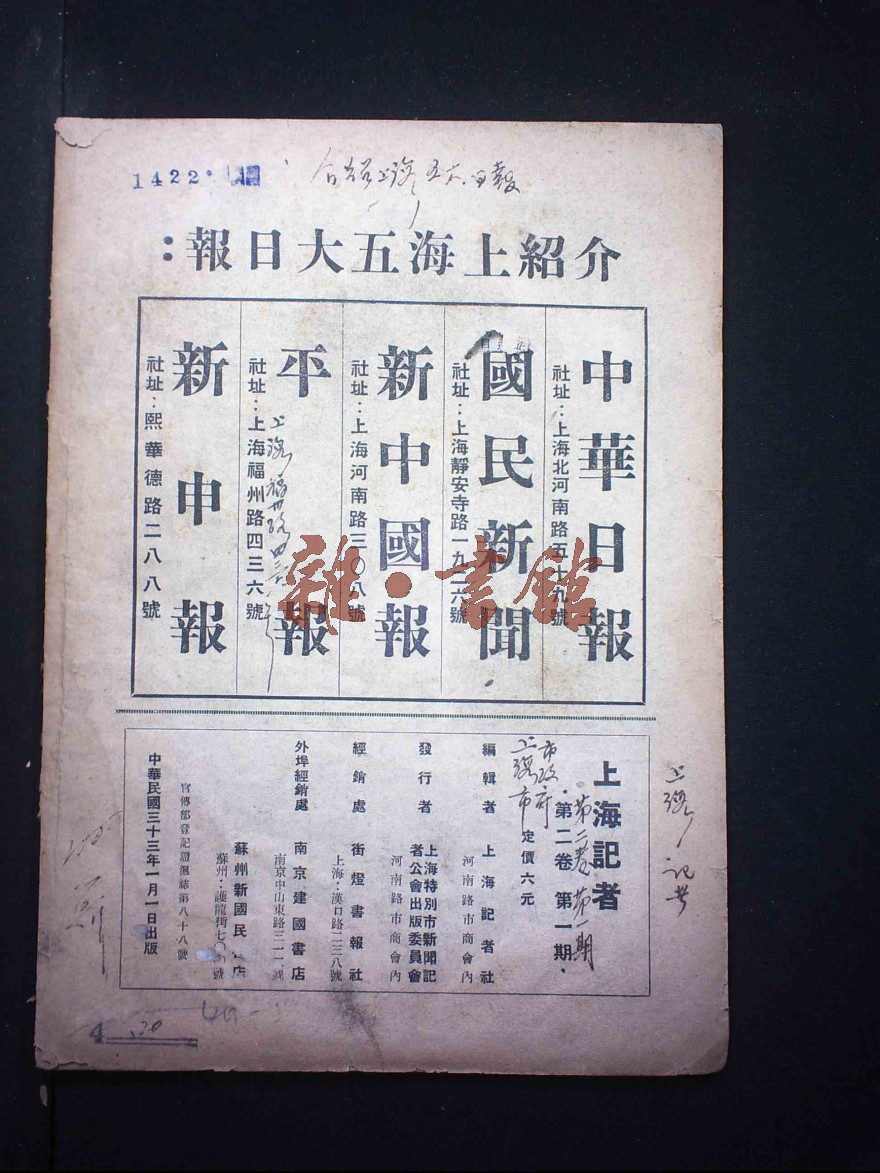 1422
介紹上海五大日報
介紹上海五大日報：
中華日報
社址：上海北河南路五十九號
國民新聞
社址：上海靜安寺路一九二六號
新中國報
社址：上海河南路三〇八號
平報
社址：上海福州路四三六號
上海福州路四三六號
新申報
社址：熙華德路二八八號
雜·書館
上海記者
上海記者
·第二卷 第一期·
第二卷第一期
定價六元
市政府
上海市
編輯者 上海記者社
河南路市商會內
發行者 上海特別市新聞記者公會出版委員會
河南路市商會內
經銷處 街燈書報社
上海：漢口路二三八號
外埠經銷處 南京建國書店
南京中山東路三一一號
蘇州新國民 店
蘇州：護龍街七〇 號
宣傳部登記證滬誌第八十八號
中華民國三十三年一月一日出版
4